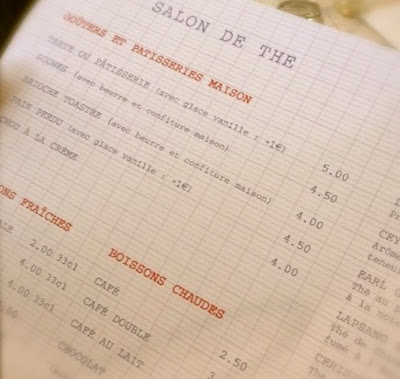 SALON DE THE
GOÛTERS ET PATISSERIES MAISON
TARTE OU PÂTISSERIE (avec glace vanille : -1€) 5.00
SCONES (avec beurre et confiture maison) 4.50
BRIOCHE TOASTÉE (avec beurre et confiture maison) 4.00
PAIN PERDU (avec glace vanille : -1€) 4.50
CHOU À LA CRÈME 4.00
ONS FRAÎCHES
2.00 33cl
4.00 33cl
4.00 33cl
BOISSONS CHAUDES
CAFÉ 2.50
CAFÉ DOUBLE 3.
CAFÉ AU LAIT
CHOCOLAT
CEY
Arôm
teneu
EARL G
Thé au p
à la no
LAPSANG
Thé de
fumé à
CERIS
Thé